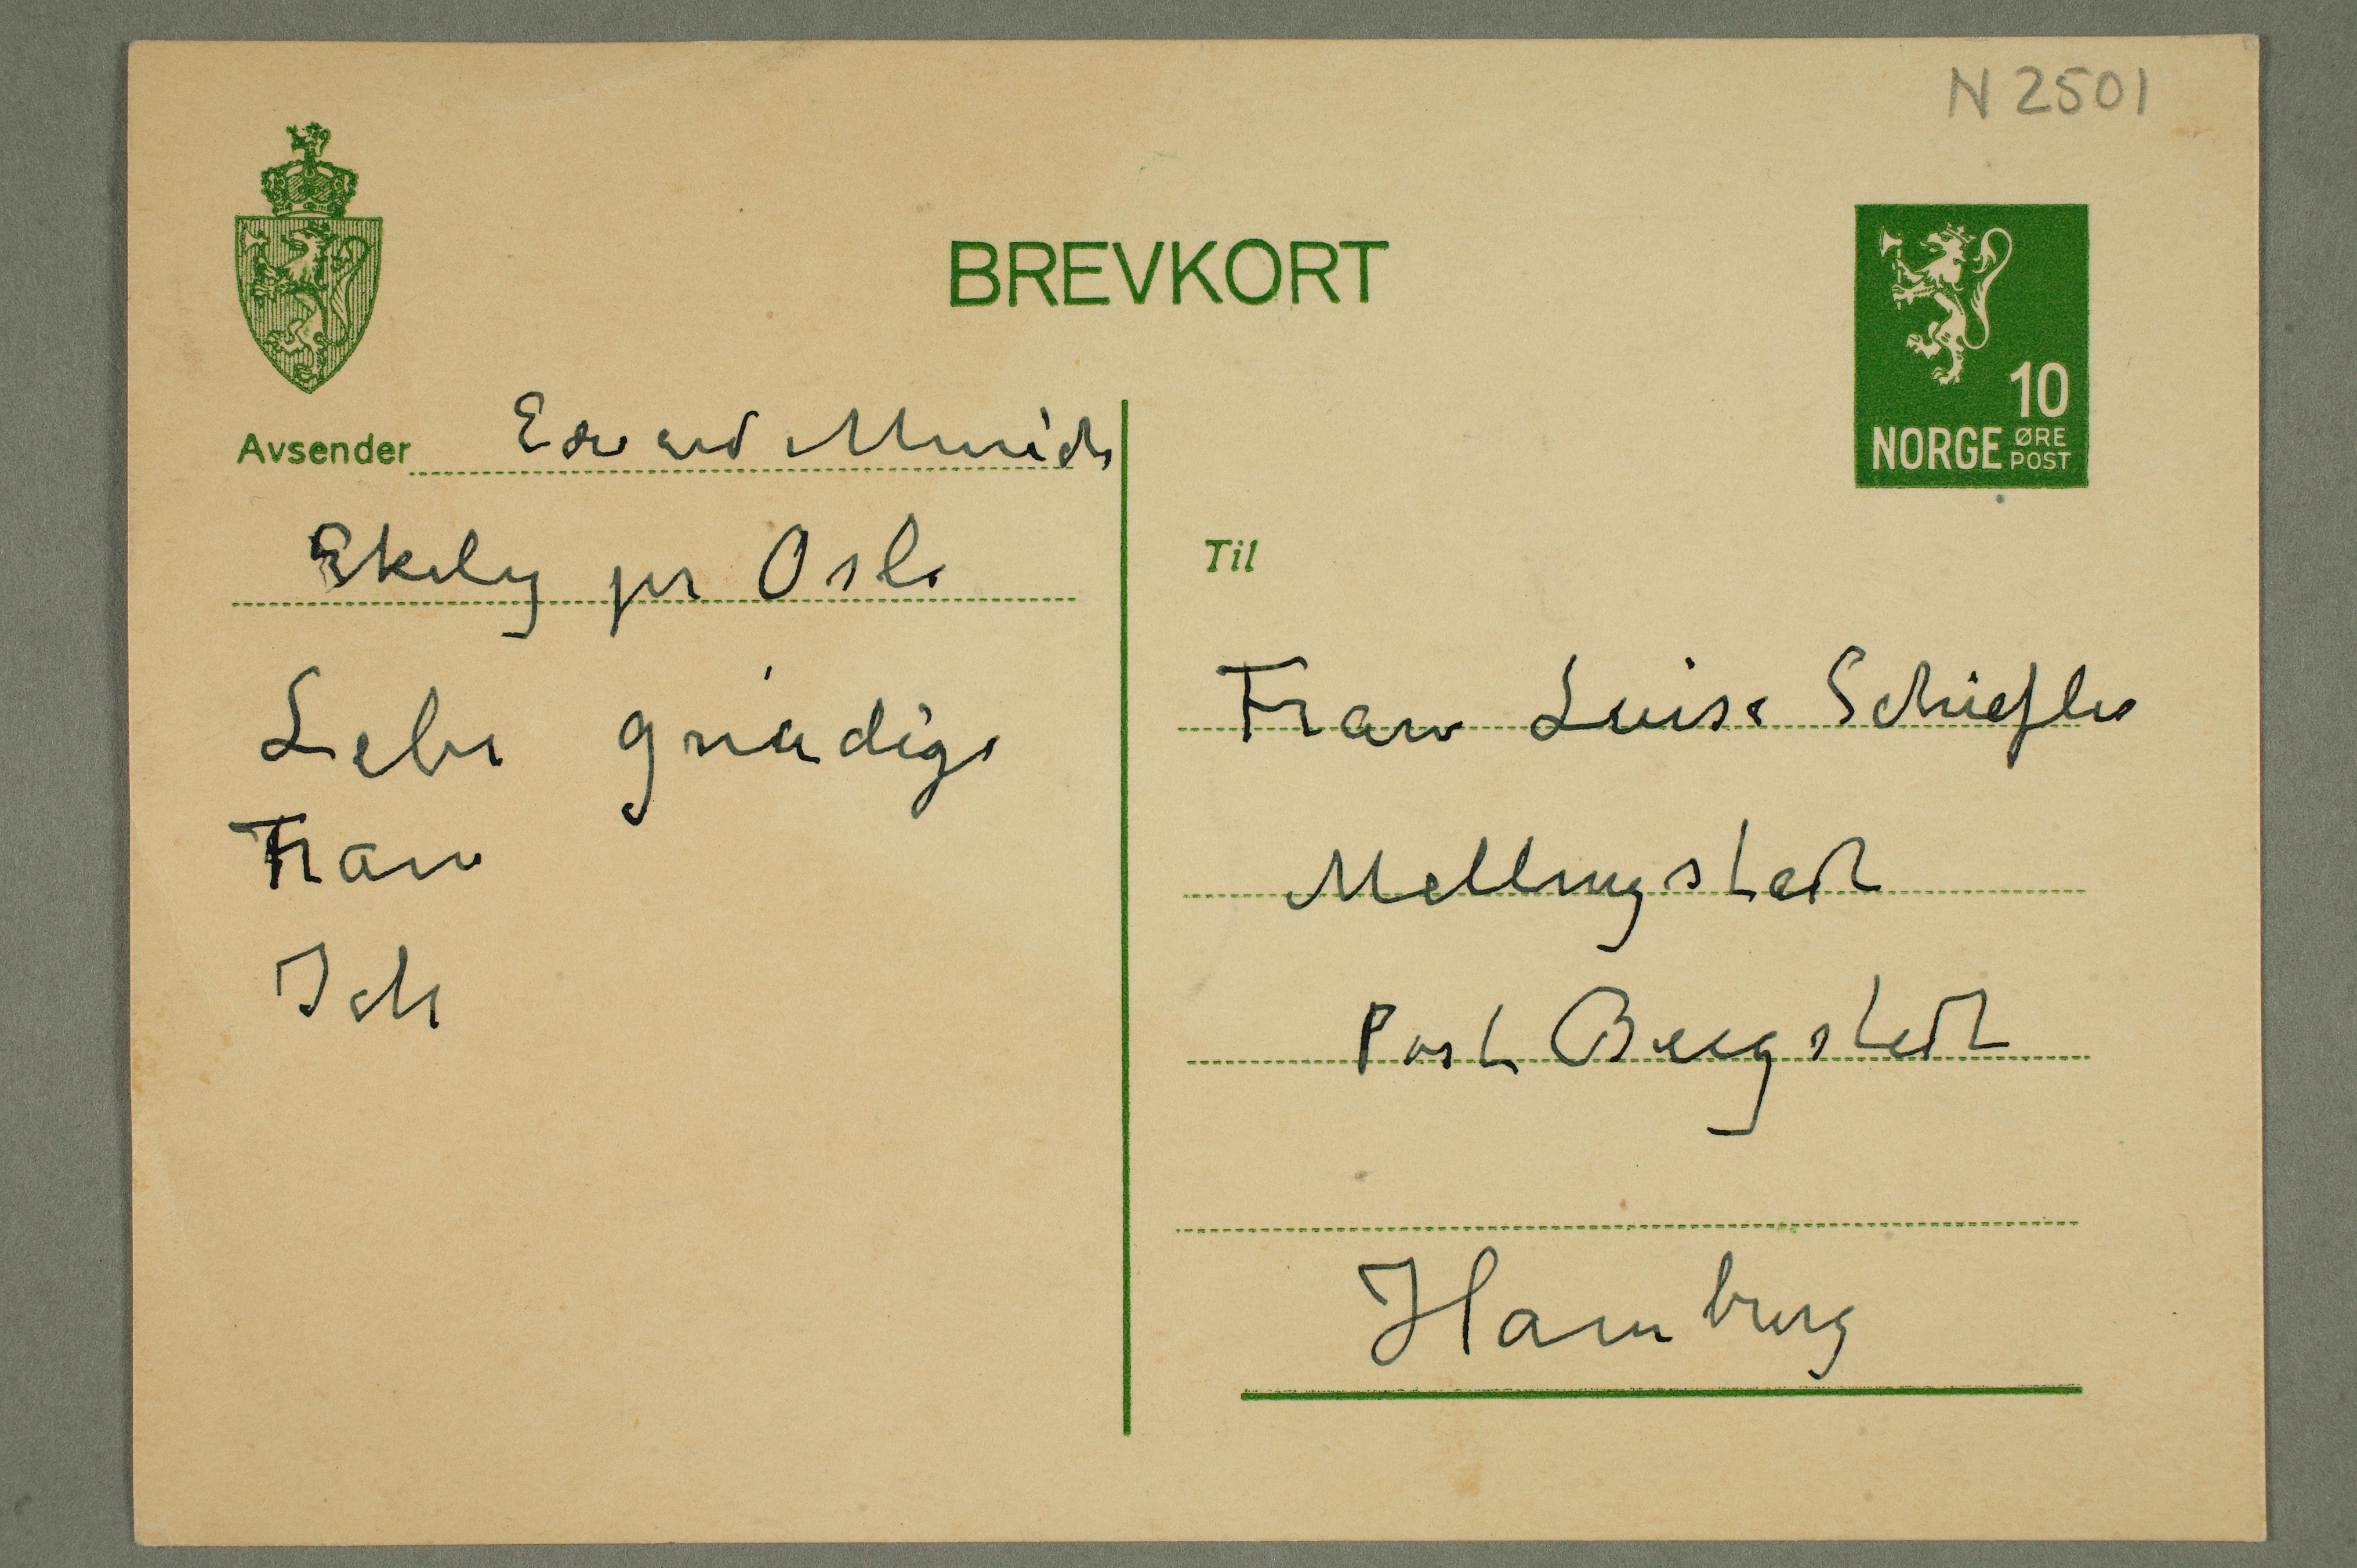 N 2501
BREVKORT
10
NORGE ØRE POST
Avsender Edvard Munch
Ekely pr Oslo
Lebe gnädige
Frau
Ich
Til
Frau Luise Schiefler
Mellingstedt
Post Bergstedt
Hamburg